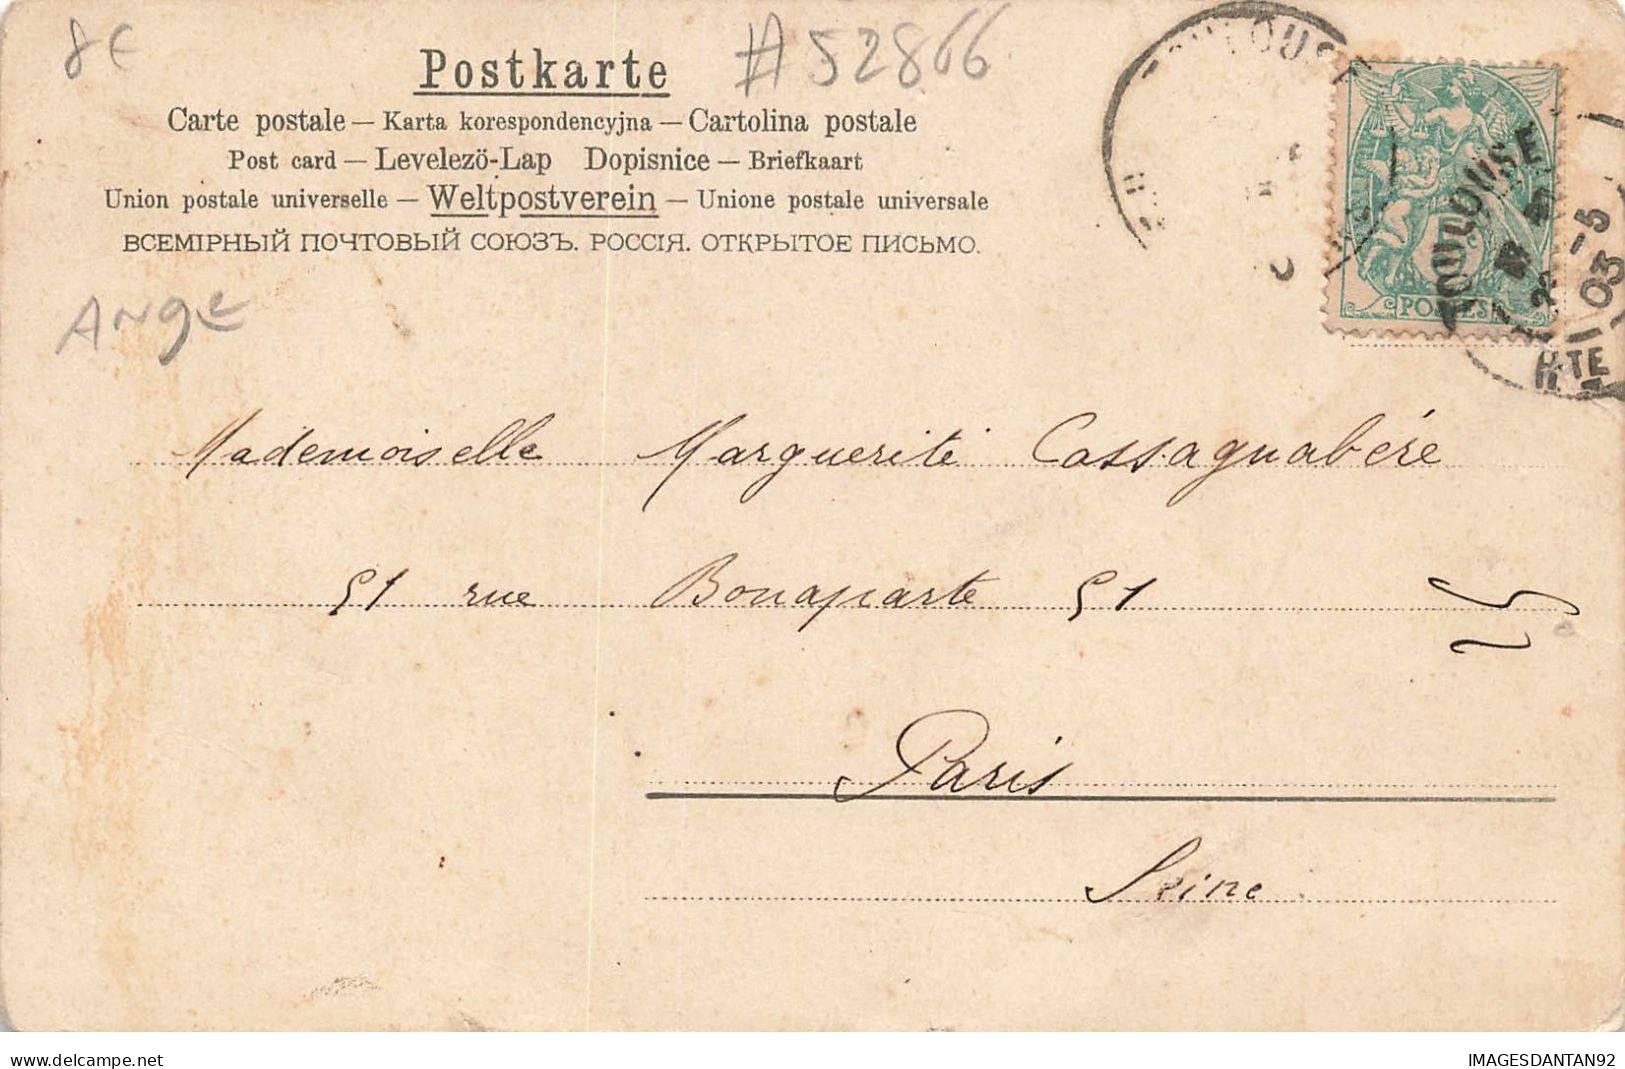 8€
#52866
Postkarte
Carte postale — Karta korespondencyjna — Cartolina postale
Post card — Levelezö-Lap Dopisnice — Briefkaart
Union postale universelle — Weltpostverein — Unione postale universale
ВСЕМІРНЫЙ ПОЧТОВЫЙ СОЮЗЪ. РОССІЯ. ОТКРЫТОЕ ПИСЬМО.
TOULOUSE
POSTES
TOULOUSE
03
Hte
Ange
Mademoiselle Marguerite Cassagnabère
51 rue Bonaparte 51
Paris
Seine
delcampe.net
IMAGESDANTAN92